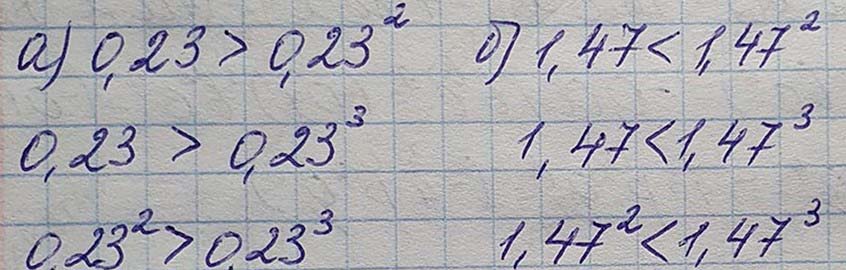 а) 0,23 > 0,23² б) 1,47 < 1,47²
0,23 > 0,23³ 1,47 < 1,47³
0,23² > 0,23³ 1,47² < 1,47³